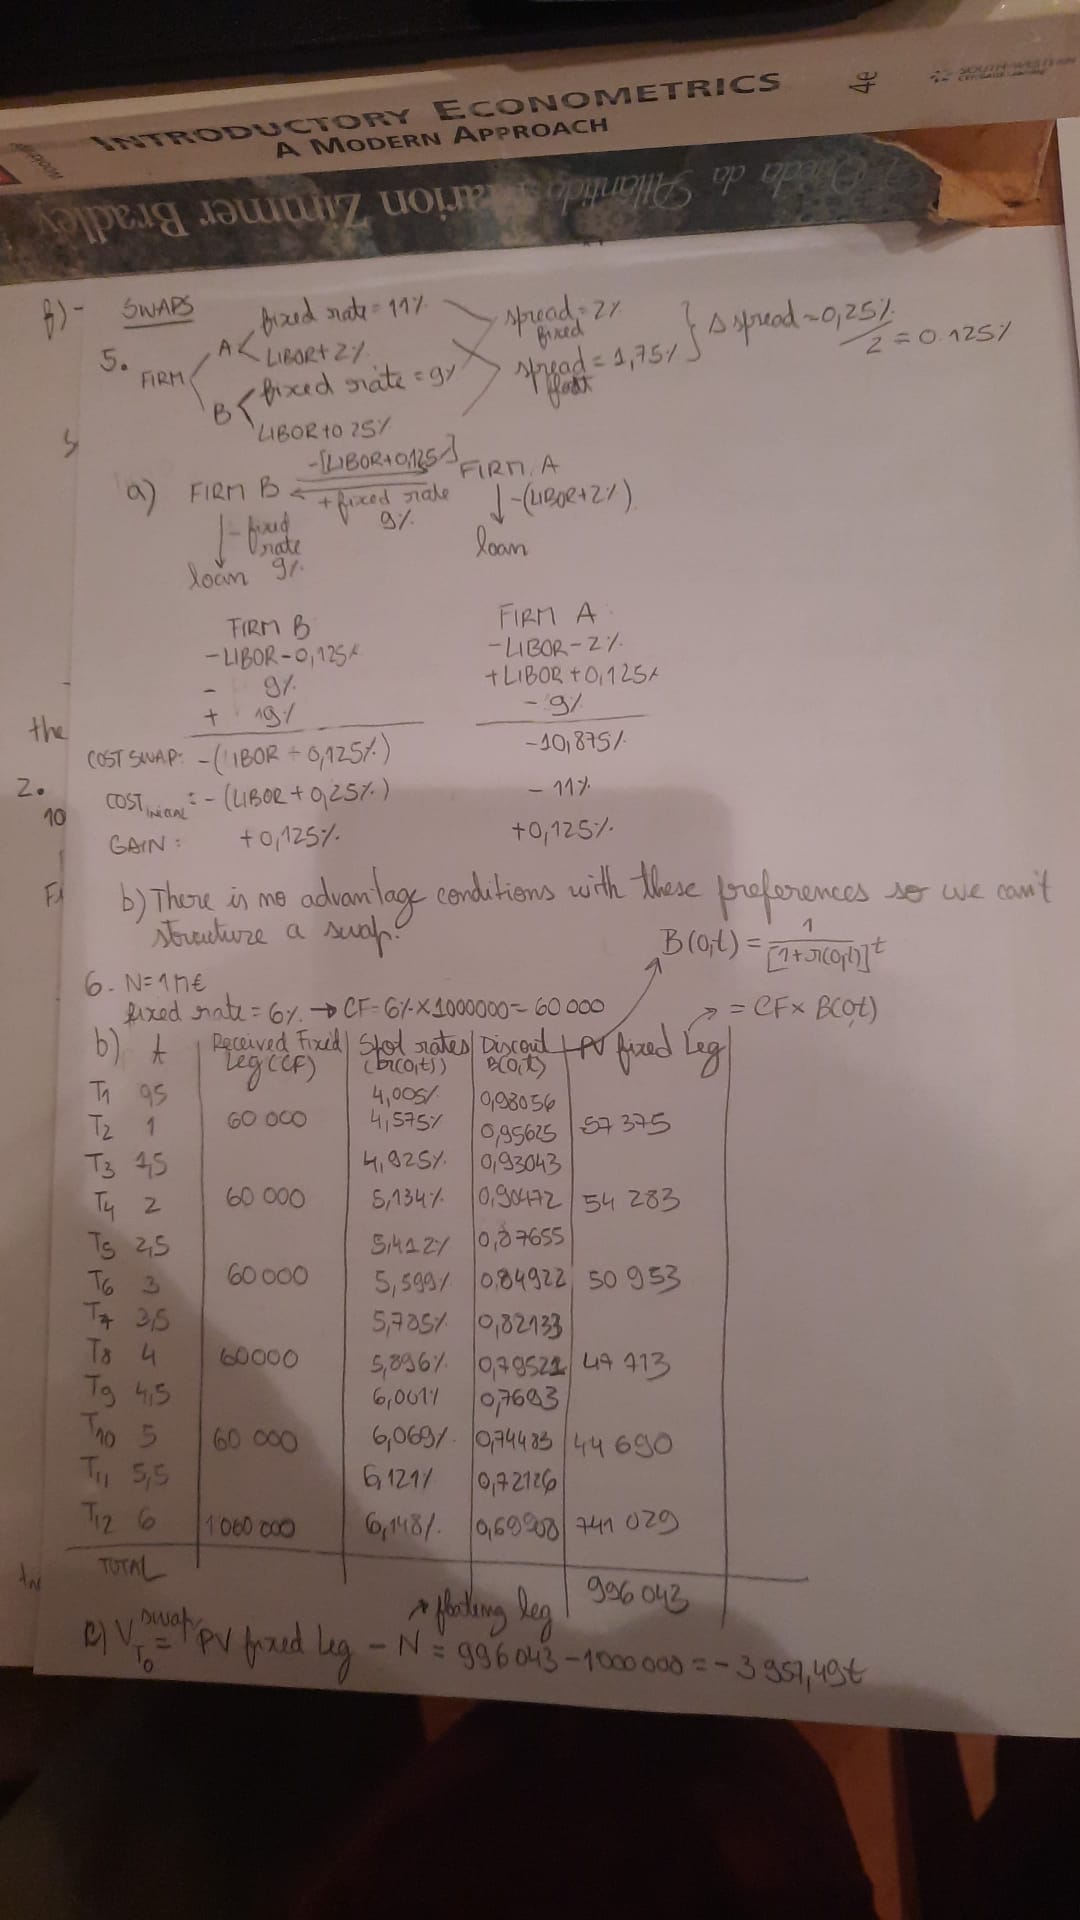 INTRODUCTORY ECONOMETRICS
A MODERN APPROACH
4e
SOUTH-WESTERN
A Queda da Atlântida Marion Zimmer Bradley
f)- SWAPS
5. FIRM
A fixed rate = 11%
LIBOR + 2%
B fixed rate = 9%
LIBOR + 0 25%
spread fixed = 2%
spread float = 1,75%
Δ spread = 0,25% / 2 = 0.125%
a) FIRM B -[LIBOR+0,125] FIRM A
+ fixed rate 9%
- fixed rate 9% -(LIBOR+2%)
loan loan
FIRM B FIRM A
-LIBOR-0,125% -LIBOR-2%
- 9% +LIBOR+0,125%
+ 9% -9%
COST SWAP: -(LIBOR + 0,125%) -10,875%
COST INICIAL: -(LIBOR + 0,25%) - 11%
GAIN: +0,125% +0,125%
the
2.
10
b) There is no advantage conditions with these preferences so we can't
structure a swap.
B(0,t) = 1 / [1+r(0,t)]^t
6. N=1M€
fixed rate = 6% → CF=6%×1000000= 60 000
= CF× B(0,t)
b) t Received Fixed Leg (CF) Spot rates (r(0,t)) Discount B(0,t) PV fixed Leg
T1 0,5 4,005% 0,98056
T2 1 60 000 4,575% 0,95625 57 375
T3 1,5 4,925% 0,93043
T4 2 60 000 5,134% 0,90472 54 283
T5 2,5 5,412% 0,87655
T6 3 60 000 5,599% 0,84922 50 953
T7 3,5 5,785% 0,82133
T8 4 60000 5,896% 0,79521 47 713
T9 4,5 6,001% 0,7693
T10 5 60 000 6,069% 0,74483 44 690
T11 5,5 6,121% 0,72126
T12 6 1 060 000 6,148% 0,69908 741 029
TOTAL 996 043
floating leg
c) V swap T0 = PV fixed Leg - N = 996 043 - 1000 000 = - 3 957,49€